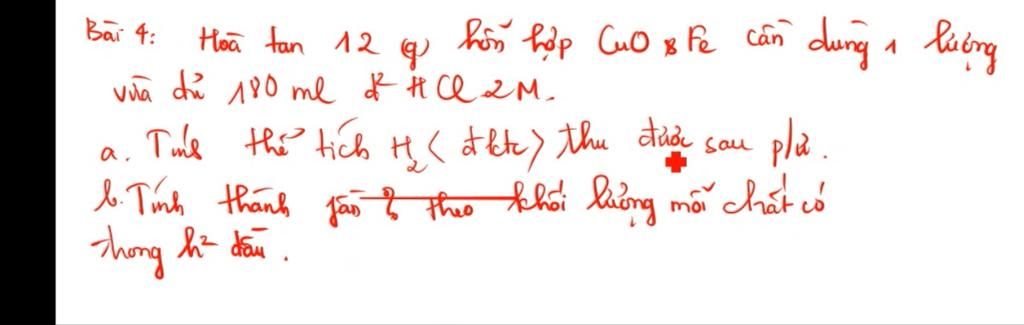 Bài 4: Hoà tan 12 (g) hỗn hợp CuO & Fe cần dùng 1 lượng
vừa đủ 180 ml d² HCl 2M.
a. Tính thể tích H₂ (đktc) thu được sau p/ứ.
b. Tính thành phần % theo khối lượng mỗi chất có
trong h² đầu.